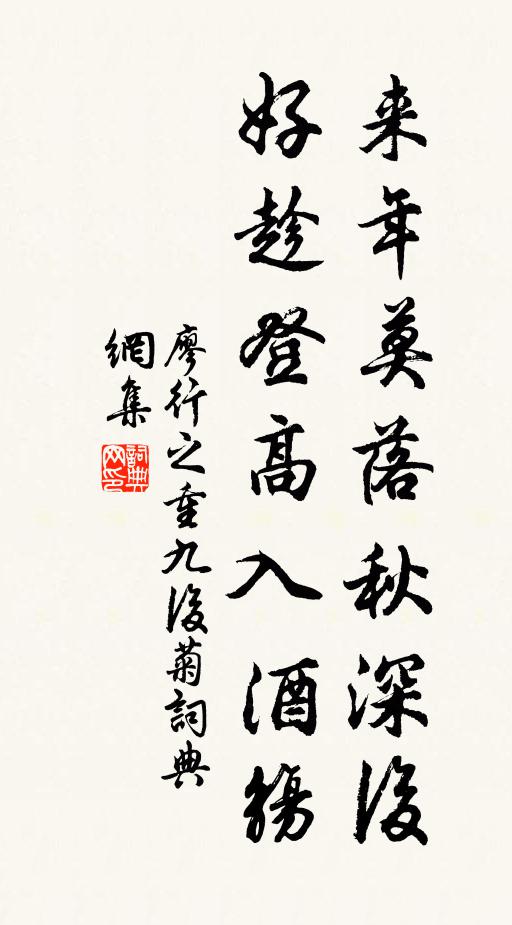 来年莫落秋深後
好趁登高入酒觴
廖行之重九後菊詞典
網集
詞典
网印